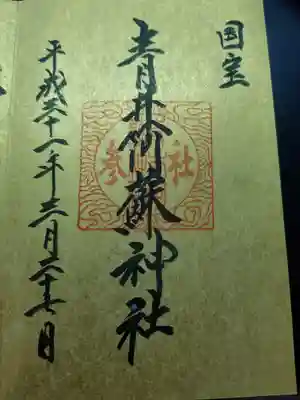 国宝
青井阿蘇神社
社参
平成三十一年三月二十七日